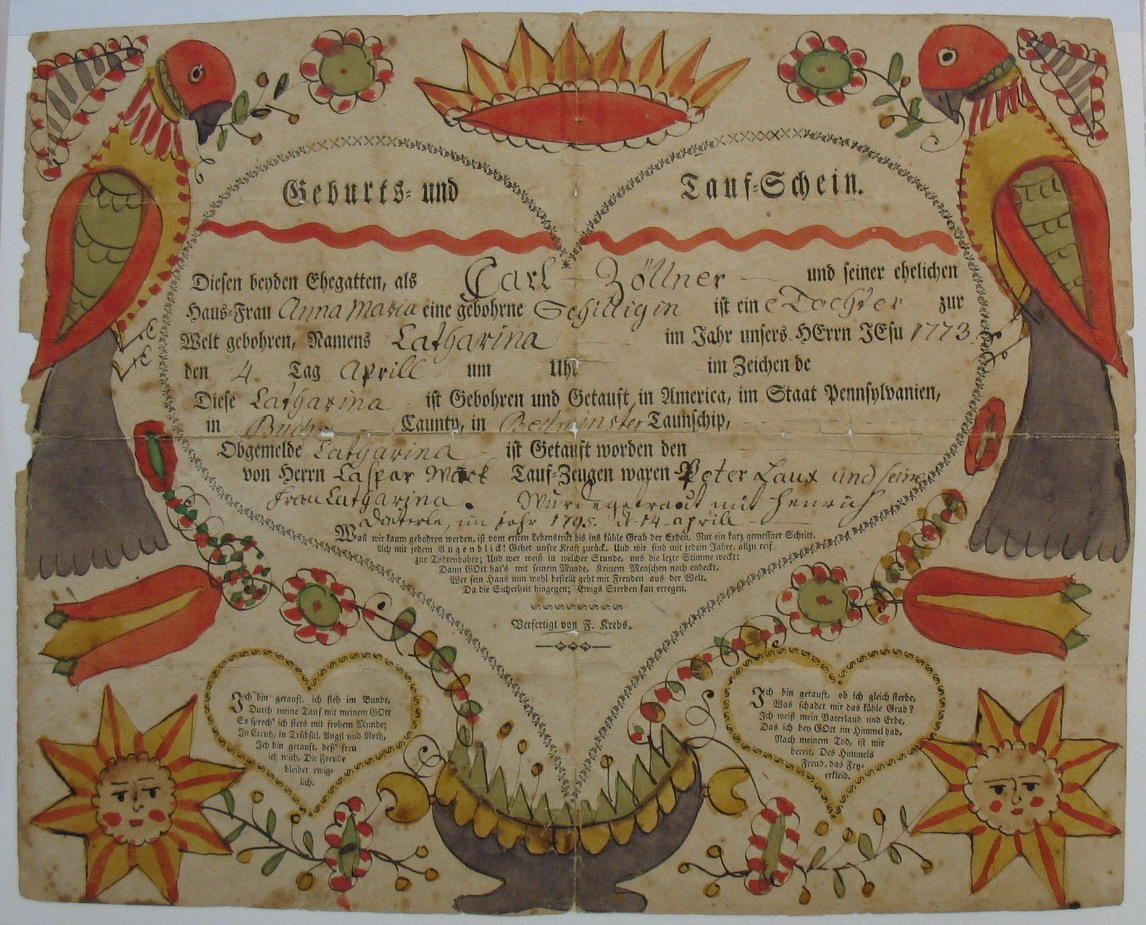 Geburts- und Tauf-Schein.
Diesen beyden Ehegatten, als Carl Zöllner und seiner ehelichen
Haus-Frau Anna Maria eine gebohrne Schilligin ist ein e Tochter zur
Welt gebohren, Namens Catharina im Jahr unsers HErrn JEsu 1773
den 4 Tag Aprill um Uhr im Zeichen de
Diese Catharina ist Gebohren und Getauft in America, im Staat Pennsylvanien,
in Bucks Caunty, in Bethminster Taunschip,
Obgemelde Catharina ist Getauft worden den
von Herrn Caspar Wack Tauf-Zeugen waren Peter Laux und seine
Frau Catharina. Wurde getraut mit Henrich
im Jahr 1795. d. 14 aprill
Was wir kaum gebohren werden, ist vom ersten Lebenstritt bis ins kühle Grab der Erden, Nur ein kurz gemessner Schritt.
Ach mit jedem Augenblick! Gehet unsre Kraft zurück. Und wir sind mit jedem Jahre, allzu reif
zur Todtenbahre; Und wer weiß in welcher Stunde, uns die lezte Stimme weckt:
Dann GOtt hat's mit seinem Munde, Keinem Menschen noch endeckt.
Wer sein Haus nun wohl bestellt geht mit Freuden aus der Welt.
Da die Sicherheit hingegen; Ewigs Sterben kan erregen.
Verfertigt von F. Krebs.
Ich bin getauft, ich steh im Bunde,
Durch meine Tauf mit meinem GOtt
So sprech' ich stets mit frohem Munde;
In Creutz, in Trübsal, Angst und Noth,
Ich bin getauft, deß' freu
ich mich, Die Freude
bleibet ewig-
lich.
Ich bin getauft, ob ich gleich sterbe,
Was schadet mir das kühle Grab?
Ich weiß mein Vaterland und Erbe,
Das ich bey GOtt im Himmel hab,
Nach meinem Tod, ist mir
bereit, Des Himmels
Freud, das Fey-
erkleid.